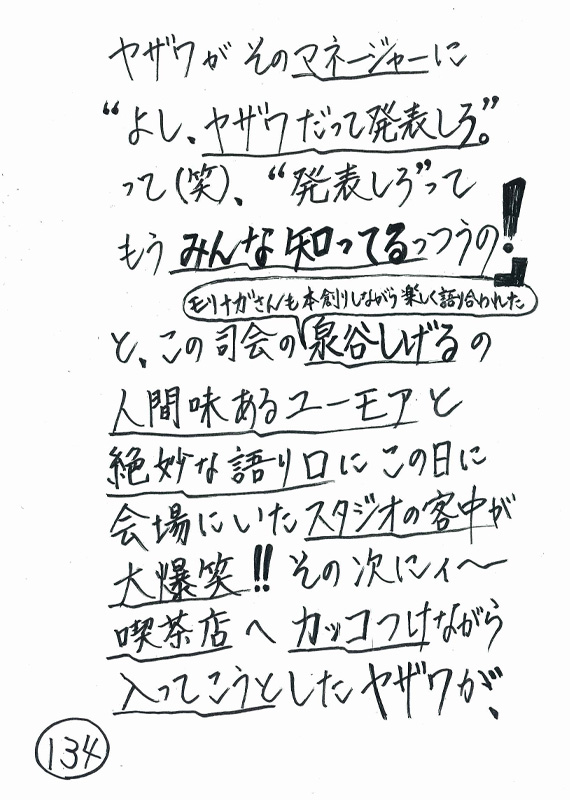 ヤザワが そのマネージャーに
“よし、ヤザワだって発表しろ。”
って(笑)、“発表しろ”って
もう みんな知ってるっつうの!
モリナガさんも本創りしながら楽しく語り合われた
と、この司会の泉谷しげるの
人間味あるユーモアと
絶妙な語り口に この日に
会場にいたスタジオの客中が
大爆笑!! その次にィ〜
喫茶店へ カッコつけながら
入ってこうとしたヤザワが、
134